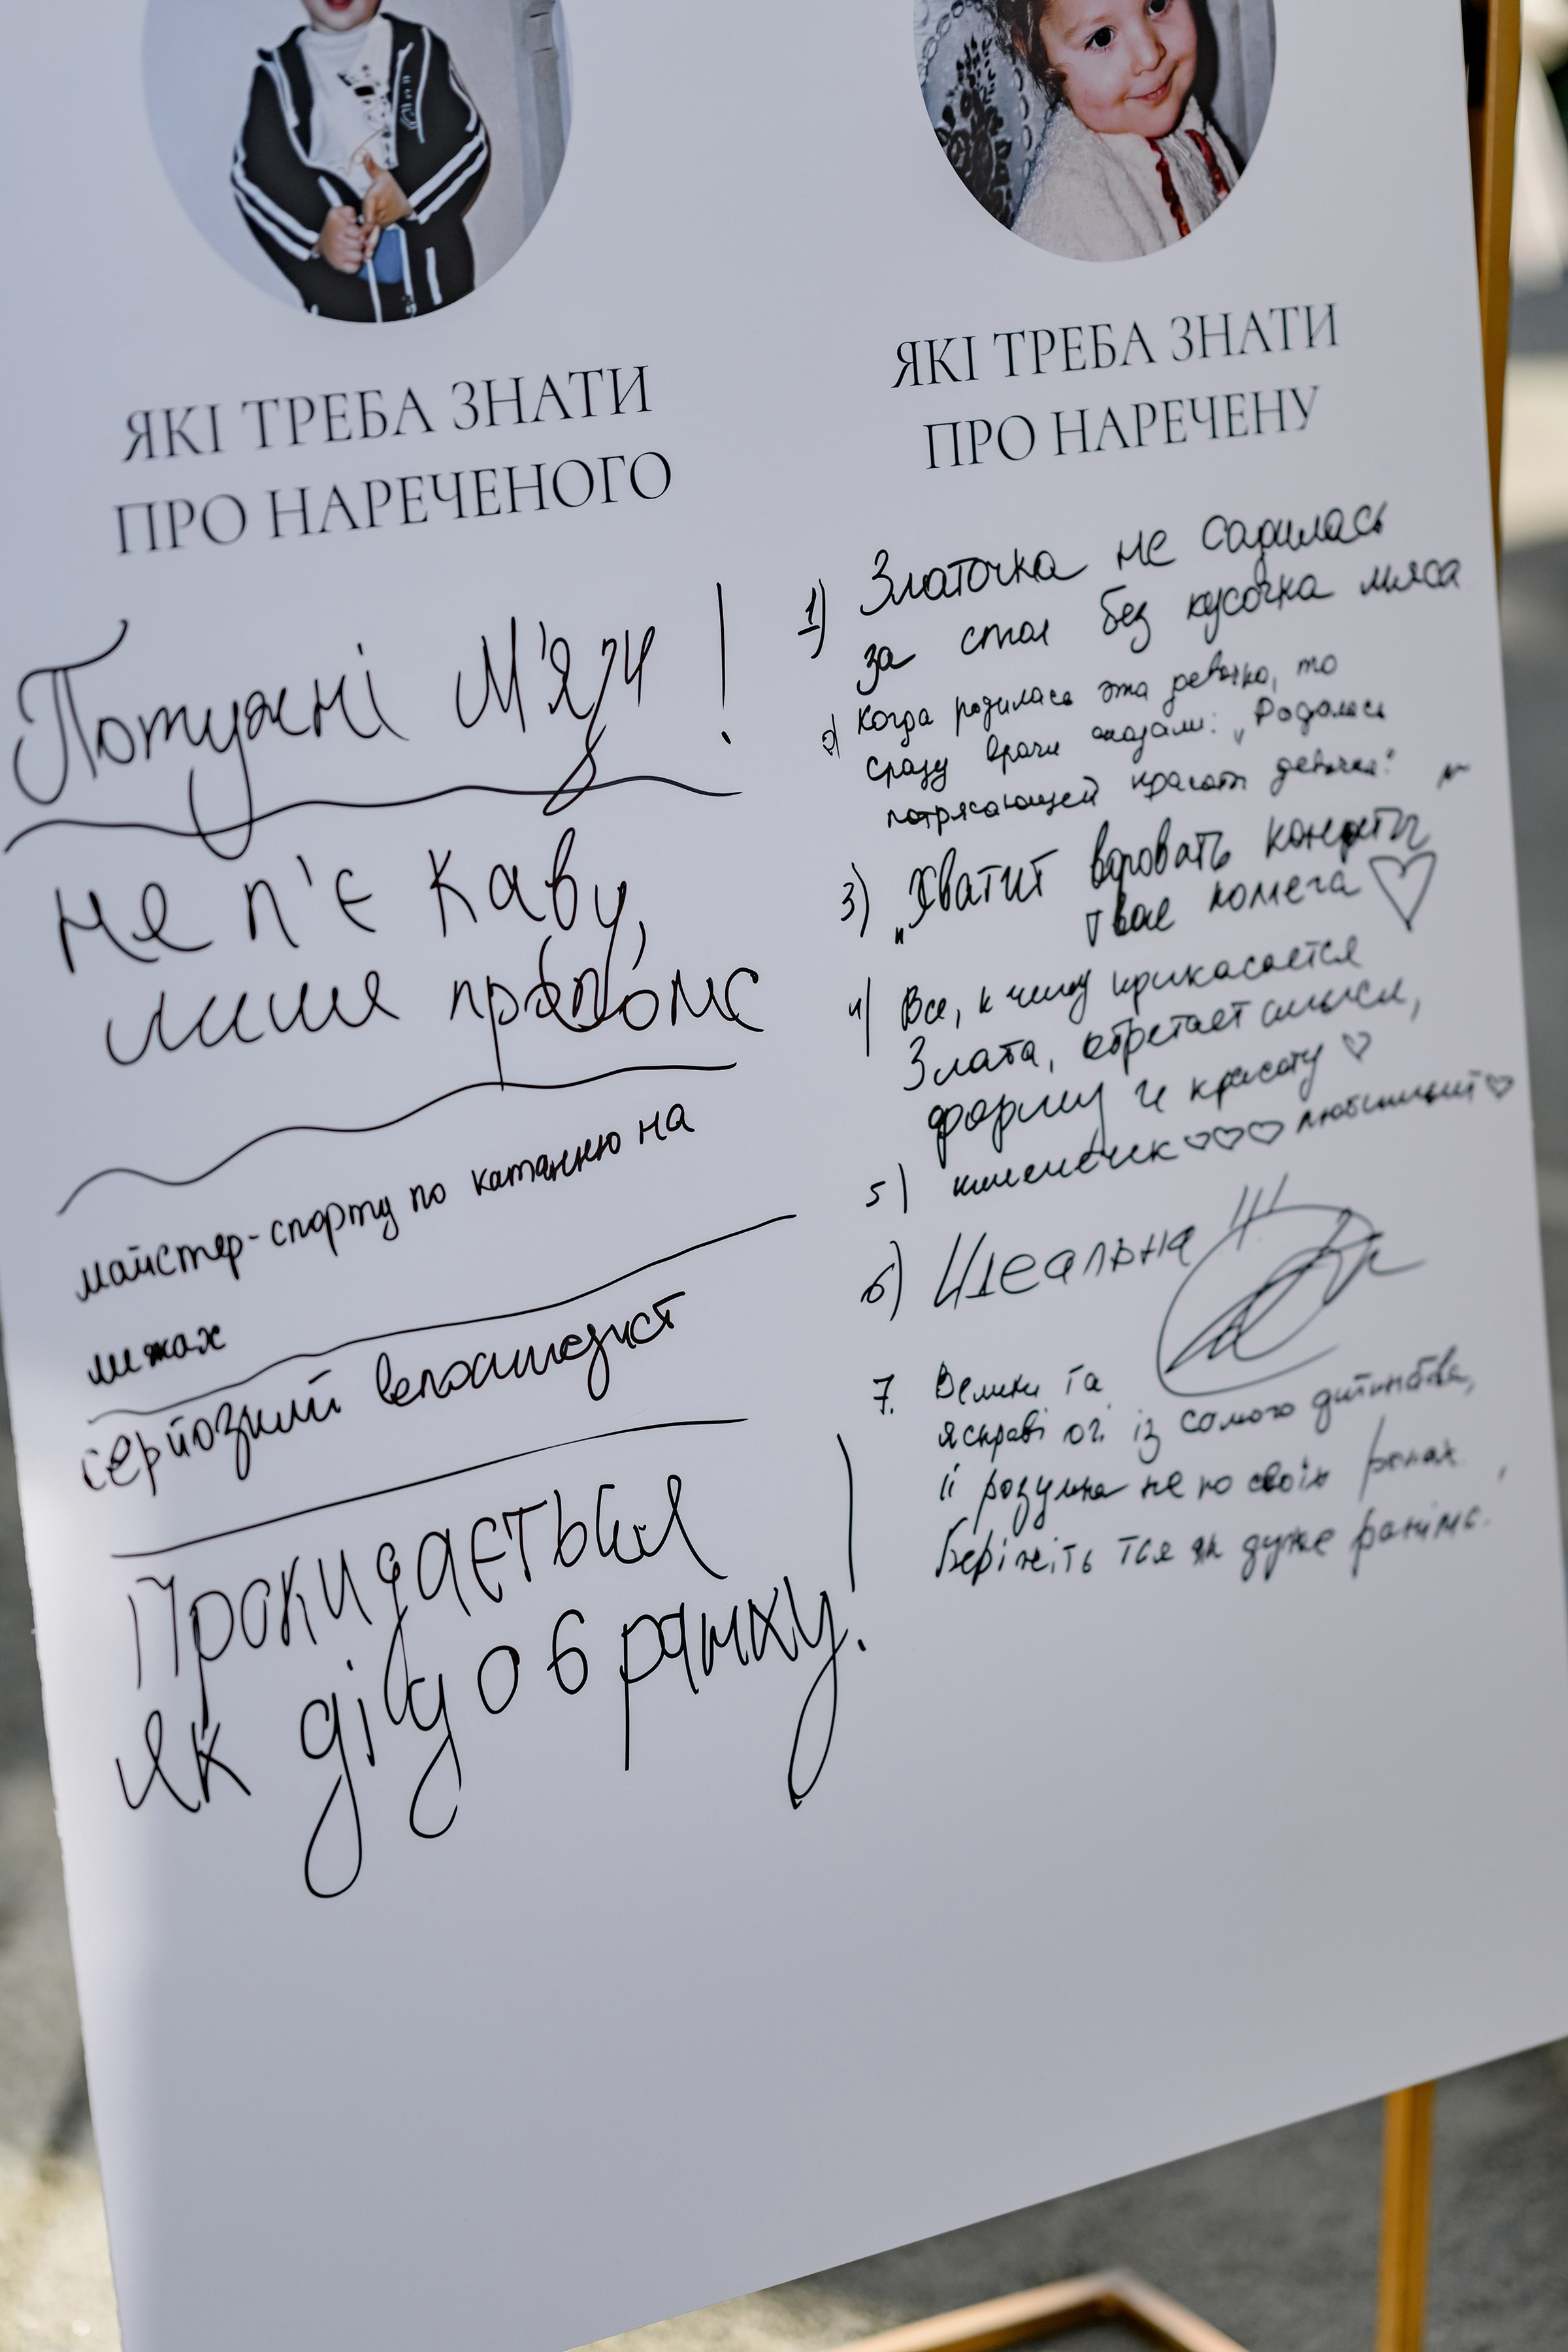 ЯКІ ТРЕБА ЗНАТИ
ПРО НАРЕЧЕНОГО
Потужні М'язи !
не п'є каву,
лише
майстер-спорту по катанню на
лижах
серйозний велосипедист
Прокидається
як дід о 6 ранку!
ЯКІ ТРЕБА ЗНАТИ
ПРО НАРЕЧЕНУ
1) Златочка не садилась
за стол без кусочка мяса
2) Когда родилась эта девочка, то
сразу врачи сказали: „Родилась
потрясающей красоты девочка"
3) „Хватит воровать конфеты
твое
4) Все, к чему прикасается
Злата, обретает смысл,
форму и красоту ♡
5) ♡♡♡ ♡
6) Идеальна !!!
7. Велики та
яскраві очі із самого дитинства,
її розумна не по своїх роках.
Бережіть